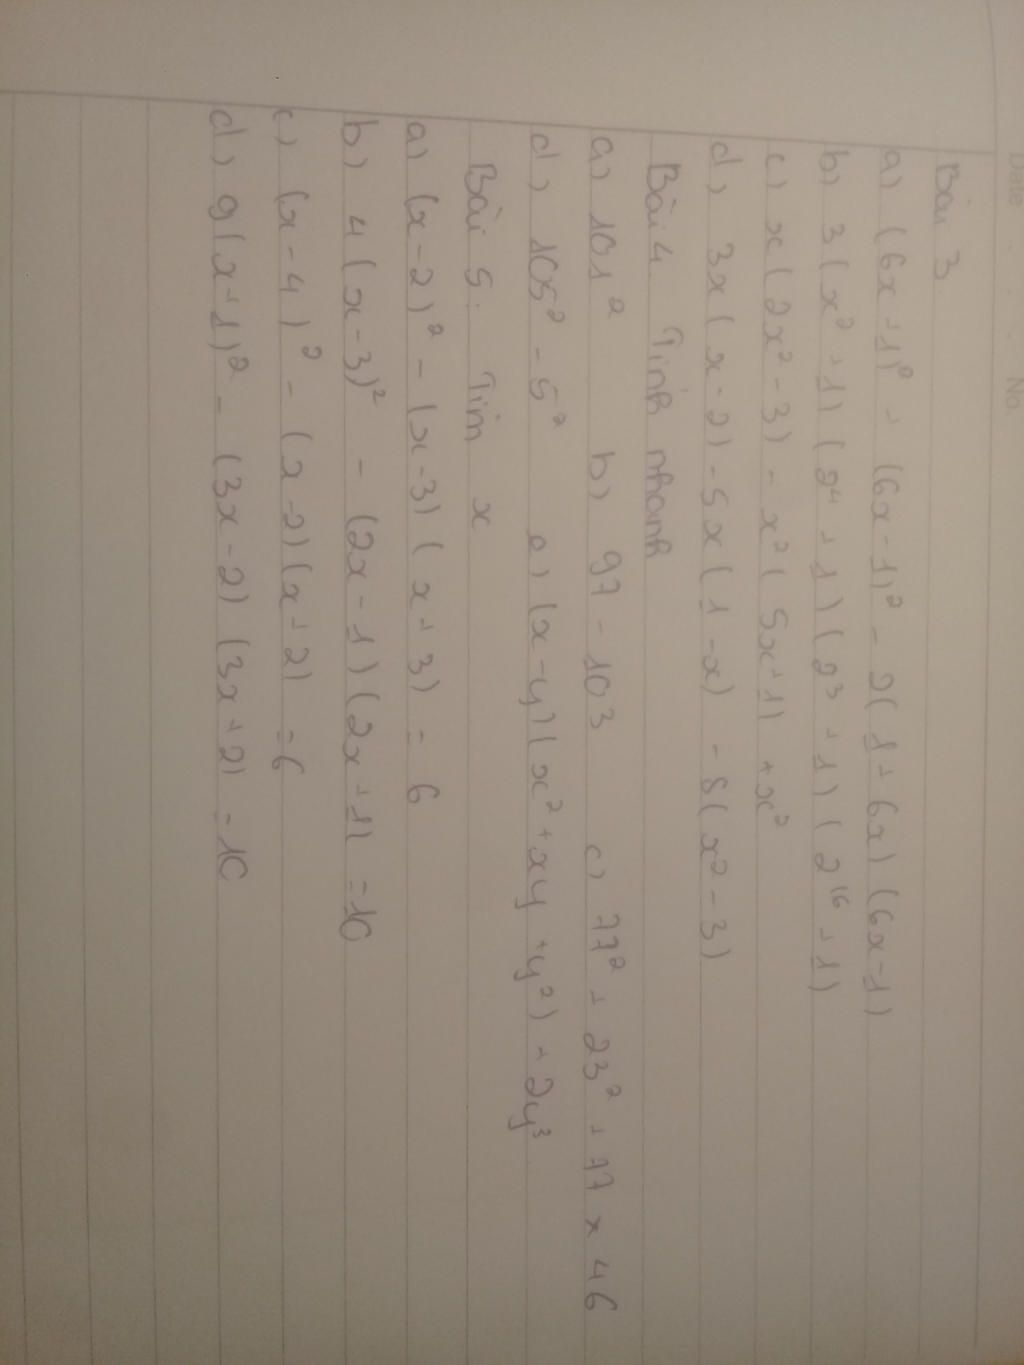 Date No.
Bài 3
a) (6x+1)² + (6x-1)² - 2(1+6x)(6x-1)
b) 3(x²+1)(2⁴+1)(2³+1)(2¹⁶+1)
c) x(2x²-3) - x²(5x+1) + x²
d) 3x(x-2) - 5x(1-x) - 8(x²-3)
Bài 4 Tính nhanh
a) 101² b) 97 - 103 c) 77² + 23² + 77 x 46
d) 105² - 5² e) (x-y)(x²+xy+y²) + 2y³
Bài 5: Tìm x
a) (x-2)² - (x-3)(x+3) = 6
b) 4(x-3)² - (2x-1)(2x+1) = 10
c) (x-4)² - (x-2)(x+2) = 6
d) 9(x+1)² - (3x-2)(3x+2) = 10